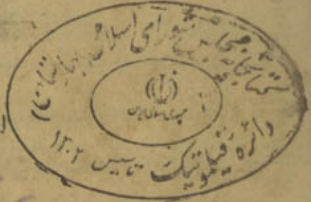 کتابخانه مجلس شورای اسلامی
جمهوری اسلامی ایران
دائره
تاسیس ۱۳۰۲